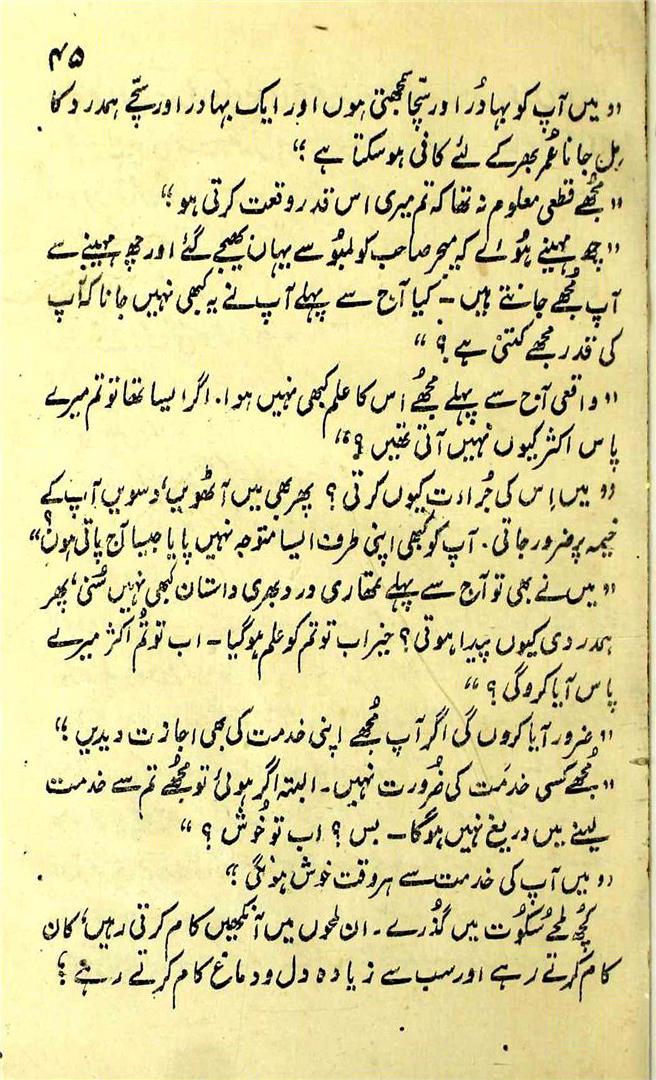 ۴۵
"میں آپ کو بہادُر اور سچّا سمجھتی ہوں اور ایک بہادر اور سچّے ہمدرد کا
مِل جانا عُمر بھر کے لئے کافی ہو سکتا ہے"
"مجُھے قطعی معلوم نہ تھا کہ تم میری اس قدر وقعت کرتی ہو"
"چھ مہینے ہُوئے کہ میجر صاحب کولمبُو سے یہاں بھیجے گئے اور چھ مہینے سے
آپ مُجھے جانتے ہیں - کیا آج سے پہلے آپ نے یہ کبھی نہیں جانا کہ آپ
کی قدر مجھے کتنی ہے؟"
"واقعی آج سے پہلے مجُھے اس کا علم کبھی نہیں ہوا. اگر ایسا تھا تو تم میرے
پاس اکثر کیوں نہیں آتی تھیں؟"
"میں اِس کی جُرادت کیوں کرتی؟ پھر بھی میں آٹھویں، دسویں آپ کے
خیمہ پر ضرور جاتی. آپ کو کبھی اپنی طرف ایسا متوجہ نہیں پایا جیسا آج پاتی ہوں؟"
"میں نے بھی تو آج سے پہلے تمھاری درد بھری داستان کبھی نہیں سُنی، پھر
ہمدردی کیوں پیدا ہوتی؟ خیر اب تو تم کو علم ہو گیا - اب تو تُم اکثر میرے
پاس آیا کرو گی؟"
"ضرور آیا کروں گی اگر آپ مُجھے اپنی خدمت کی بھی اجازت دیدیں"
"مُجھے کسی خدمَت کی ضُرورت نہیں۔ البتہ اگر ہوئی تو مجُھے تم سے خدمت
لینے میں دریغ نہیں ہو گا - بس؟ اب تو خُوش؟"
"میں آپ کی خدمت سے ہر وقت خوش ہونگی"
کُچھ لمحے سُکوُت میں گذُرے - ان لمحوں میں آنکھیں کام کرتی رہیں، کان
کام کرتے رہے اور سب سے زیادہ دل و دماغ کام کرتے رہے؛